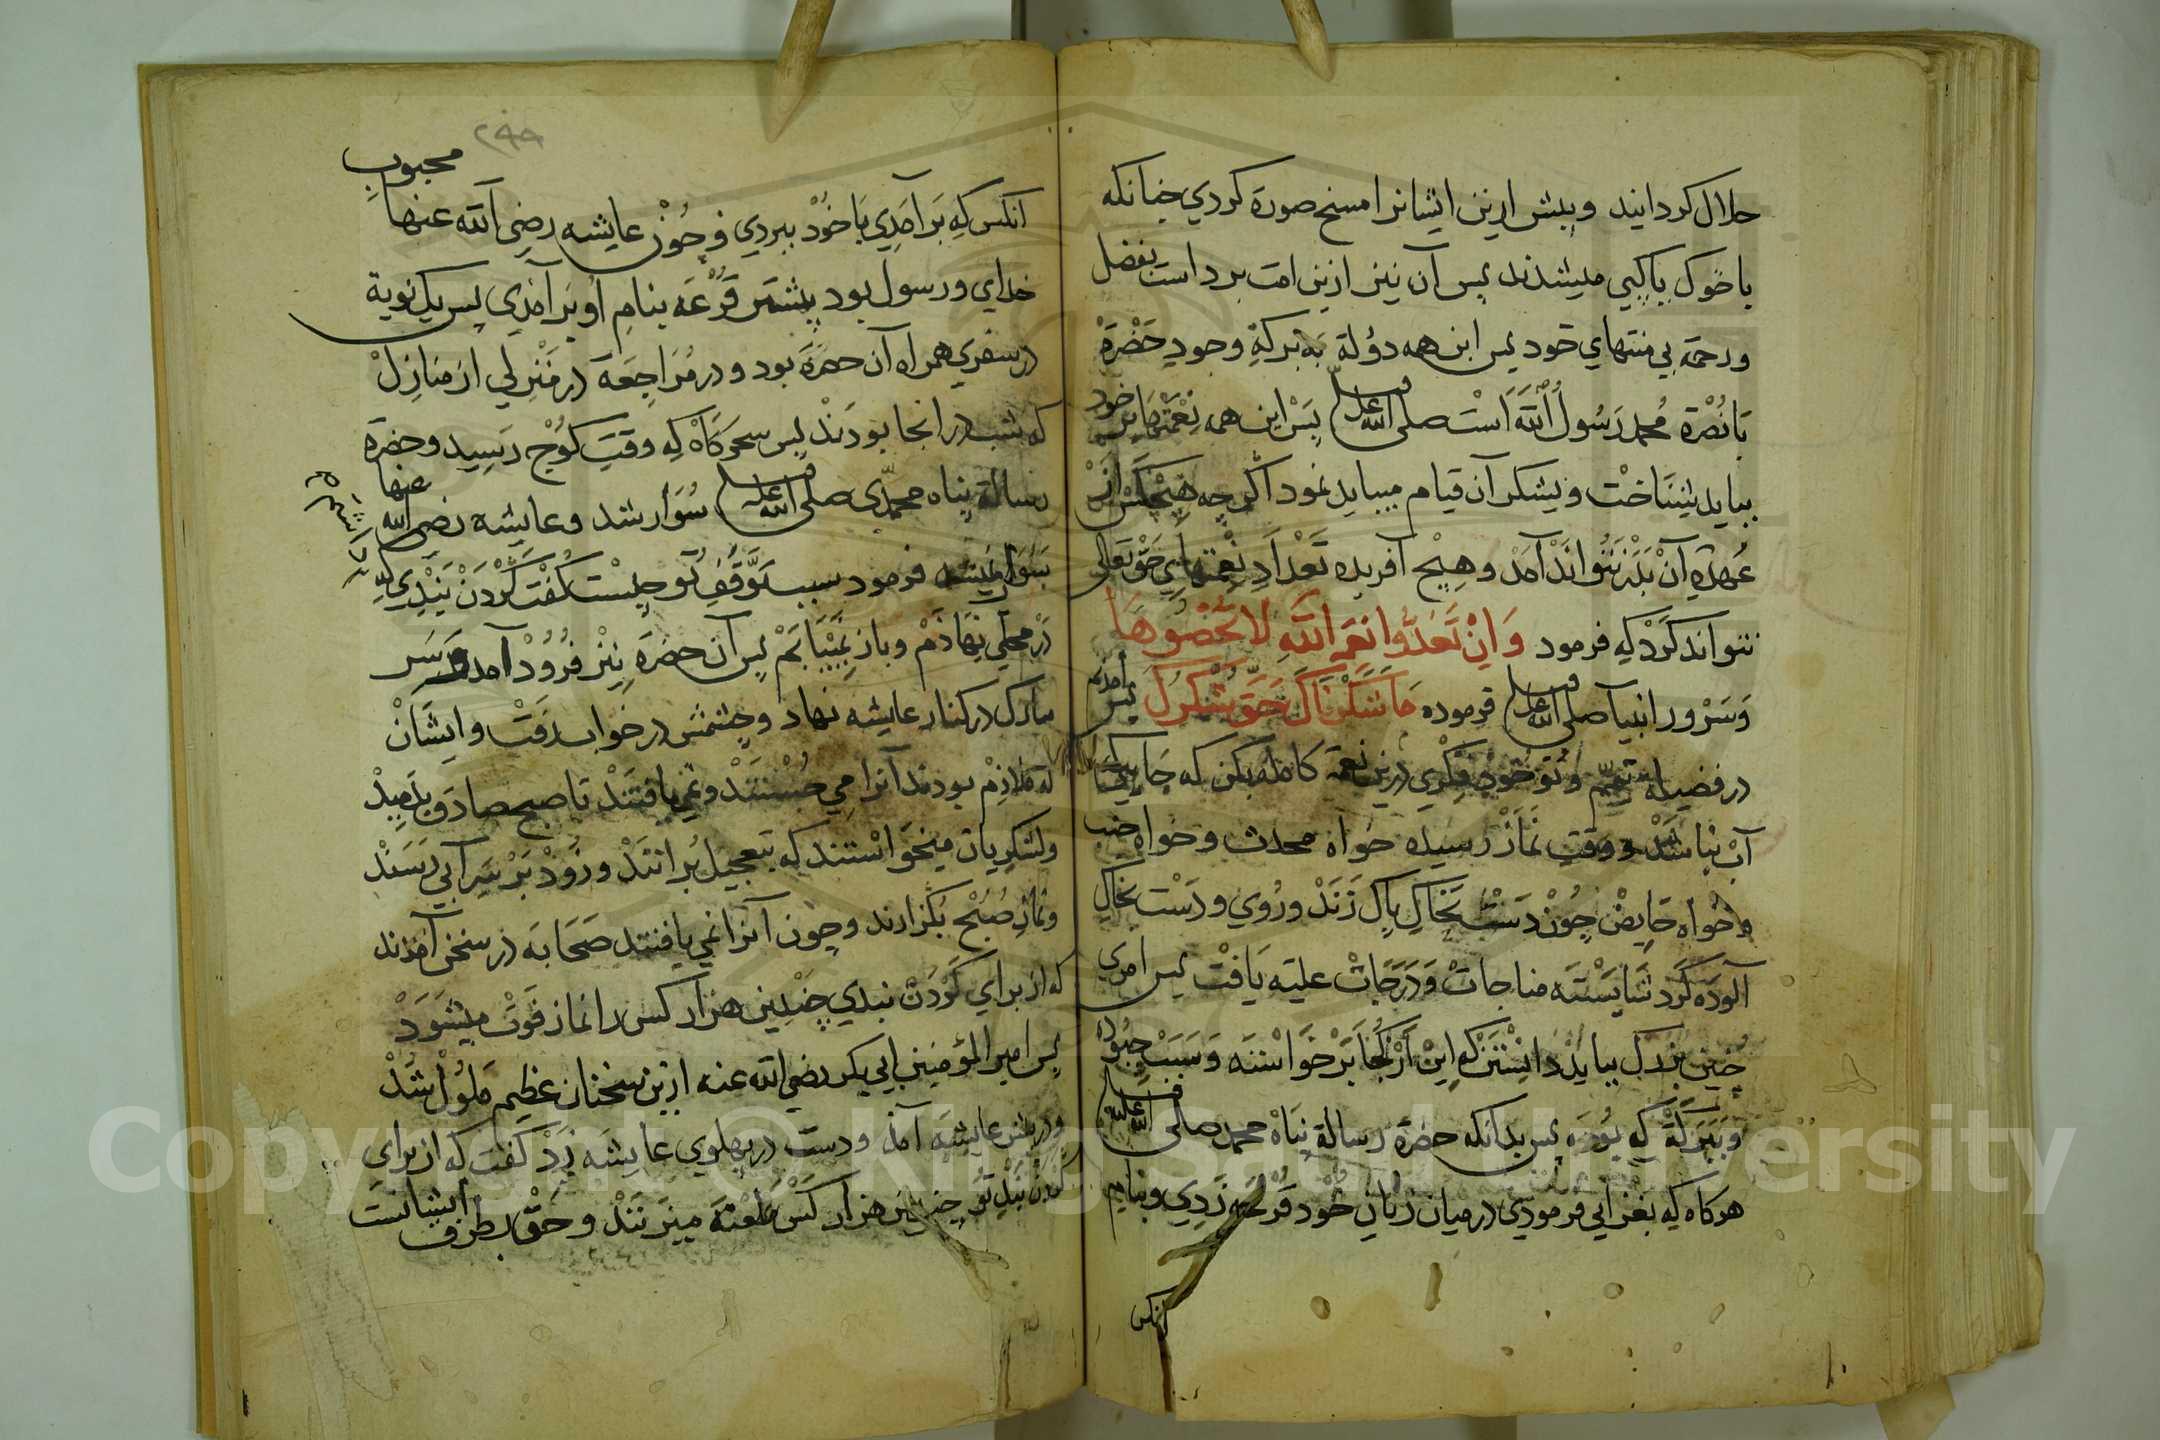 حلال کردانید وپیش ازین ایشانرا مسخ صورة کردی چنانکه
یا خوک یا کپی میشدند پس آن نیز ازین امت برداست بفضل
ورحمة بی منتهای خود پس این همه دولة به برکة وجود حضرة
با نصرة محمد رسول الله است صلی الله علیه وسلم پس این همه نعمتها بر خود
بباید شناخت وبشکر آن قیام میباید نمود اکر چه هیچکس از
عهدة آن بدر نتواند آمد وهیچ آفریده تعداد نعمتهای حق تعالی
نتواند کرد که فرمود وَاِنْ تَعُدُّوا نِعَمَ اللّٰهِ لَا تُحْصُوهَا
وسرور انبیا صلی الله علیه وسلم فرموده مَا شَكَرْنَاكَ حَقَّ شُكْرِكَ پس آمدیم
در فضیلة تیمم وتو خود فکری درین نعمة کامله بکن که جاییکه
آب نباشد ووقت نماز رسیده خواه محدث وخواه جنب
وخواه حایض چون دست بخاک پاک زند وروی ودست بخاک
آلوده کرد شایسته مناجات ودرجات علیه یافت پس امری
چنین بزرک بباید دانستن که این از کجا برخواسته وسبب چبوده
وببرکة که بوده پس بدانکه حضرة رسالة پناه محمد صلی الله علیه وسلم
هرکاه که بغزایی فرمودی درمیان زنان خود قرعه زدی وبنام
انکس
۲۹۹
انکس که برآمدی با خود ببردی وچون عایشه رضی الله عنها محبوب
خدای ورسول بود بیشتر قرعه بنام او برآمدی پس یک نوبة
در سفری همراه آن حضرة بود ودر مراجعة در منزلی از منازل
که شب در انجا بودند پس سحرکاه که وقت کوچ رسید وحضرة
رسالة پناه محمدی صلی الله علیه وسلم سوار شد وعایشه رضی الله عنها
رسول فرمود سبب توقف تو چیست کفت کردن بندی که
در محلی نهادم وباز نمییابم پس آن حضرة نیز فرود آمد وسر
مبارک در کنار عایشه نهاد وچشمش در خواب رفت وایشان
که ملازم بودند آنرا می جستند ونمی یافتند تا صبح صادق بدمید
ولشکریان میخواستند که بتعجیل برانند وزود بر سر آبی رسند
ونماز صبح بکزارند وچون آنرا نمی یافتند صحابه در سخن آمدند
که از برای کردن بندی چندین هزار کس را نماز فوت میشود
پس امیر المؤمنین ابی بکر رضی الله عنه ازین سخنان عظیم ملول شد
ودر پیش عایشه آمد ودست در پهلوی عایشه زد کفت که از برای
کردن بند تو چندین هزار کس طعنه میزنند وحق بطرف ایشانست